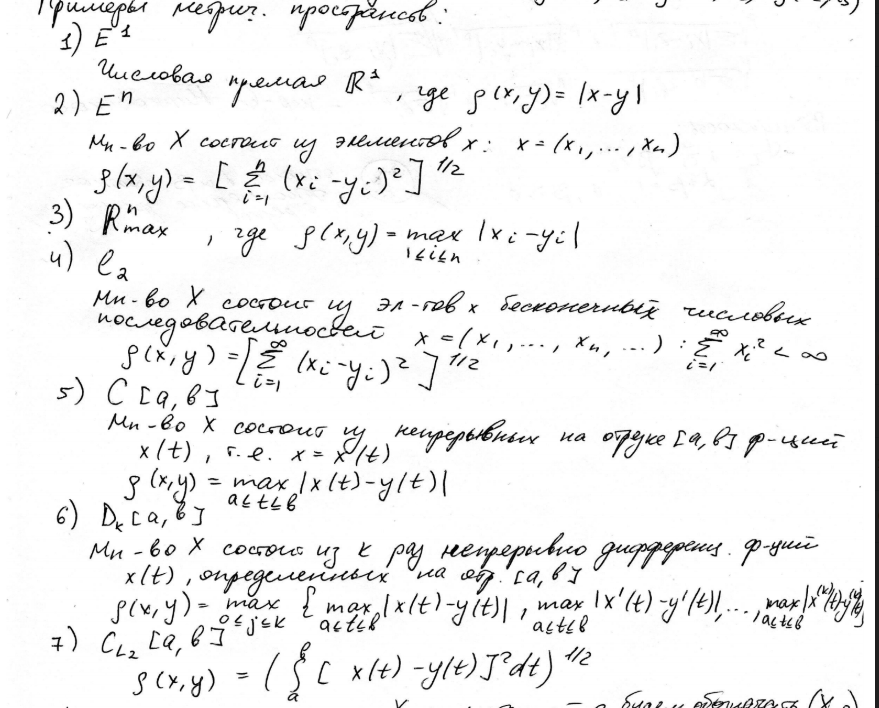 Примеры метрич. пространств:
1) E¹
Числовая прямая ℝ¹, где ρ(x,y)=|x-y|
2) Eⁿ
Мн-во X состоит из элементов x: x=(x₁,...,xₙ)
ρ(x,y) = [∑ᵢ₌₁ⁿ (xᵢ-yᵢ)²]^{1/2}
3) ℝⁿₘₐₓ, где ρ(x,y)= max_{1≤i≤n} |xᵢ-yᵢ|
4) ℓ₂
Мн-во X состоит из эл-тов x бесконечных числовых
последовательностей x=(x₁,..., xₙ,...) : ∑ᵢ₌₁^∞ xᵢ² < ∞
ρ(x,y) = [∑ᵢ₌₁^∞ (xᵢ-yᵢ)²]^{1/2}
5) C[a,b]
Мн-во X состоит из непрерывных на отрезке [a,b] ф-ций
x(t), т.е. x = x(t)
ρ(x,y) = max_{a≤t≤b} |x(t)-y(t)|
6) Dₖ[a,b]
Мн-во X состоит из k раз непрерывно дифференц. ф-ций
x(t), определенных на отр. [a,b]
ρ(x,y) = max_{0≤j≤k} { max_{a≤t≤b} |x(t)-y(t)|, max_{a≤t≤b} |x'(t)-y'(t)|,..., max_{a≤t≤b} |x^{(k)}(t)-y^{(k)}(t)|
7) C_{L₂}[a,b]
ρ(x,y) = (∫ₐᵇ [x(t)-y(t)]²dt)^{1/2}
будем обозначать (X,